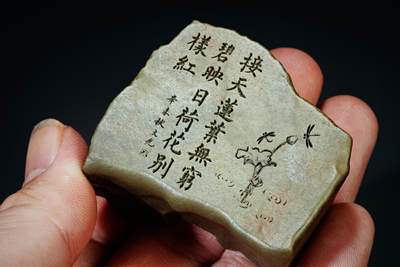 接天蓮葉無窮
碧映日荷花別
樣紅